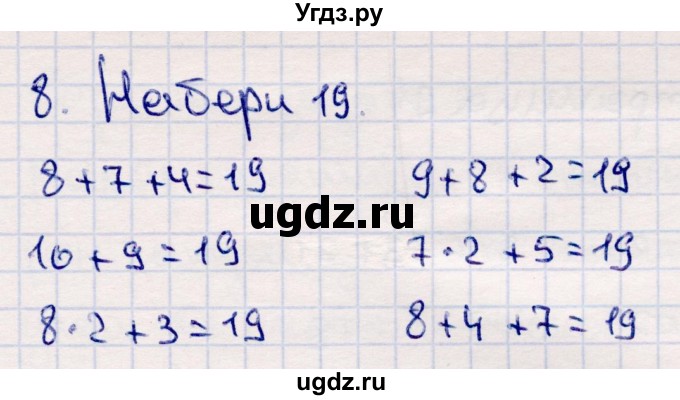 Угдз.ру
8. Набери 19.
8+7+4=19 9+8+2=19
ugdz.ru
10+9=19 7·2+5=19
8·2+3=19 8+4+7=19
ugdz.ru